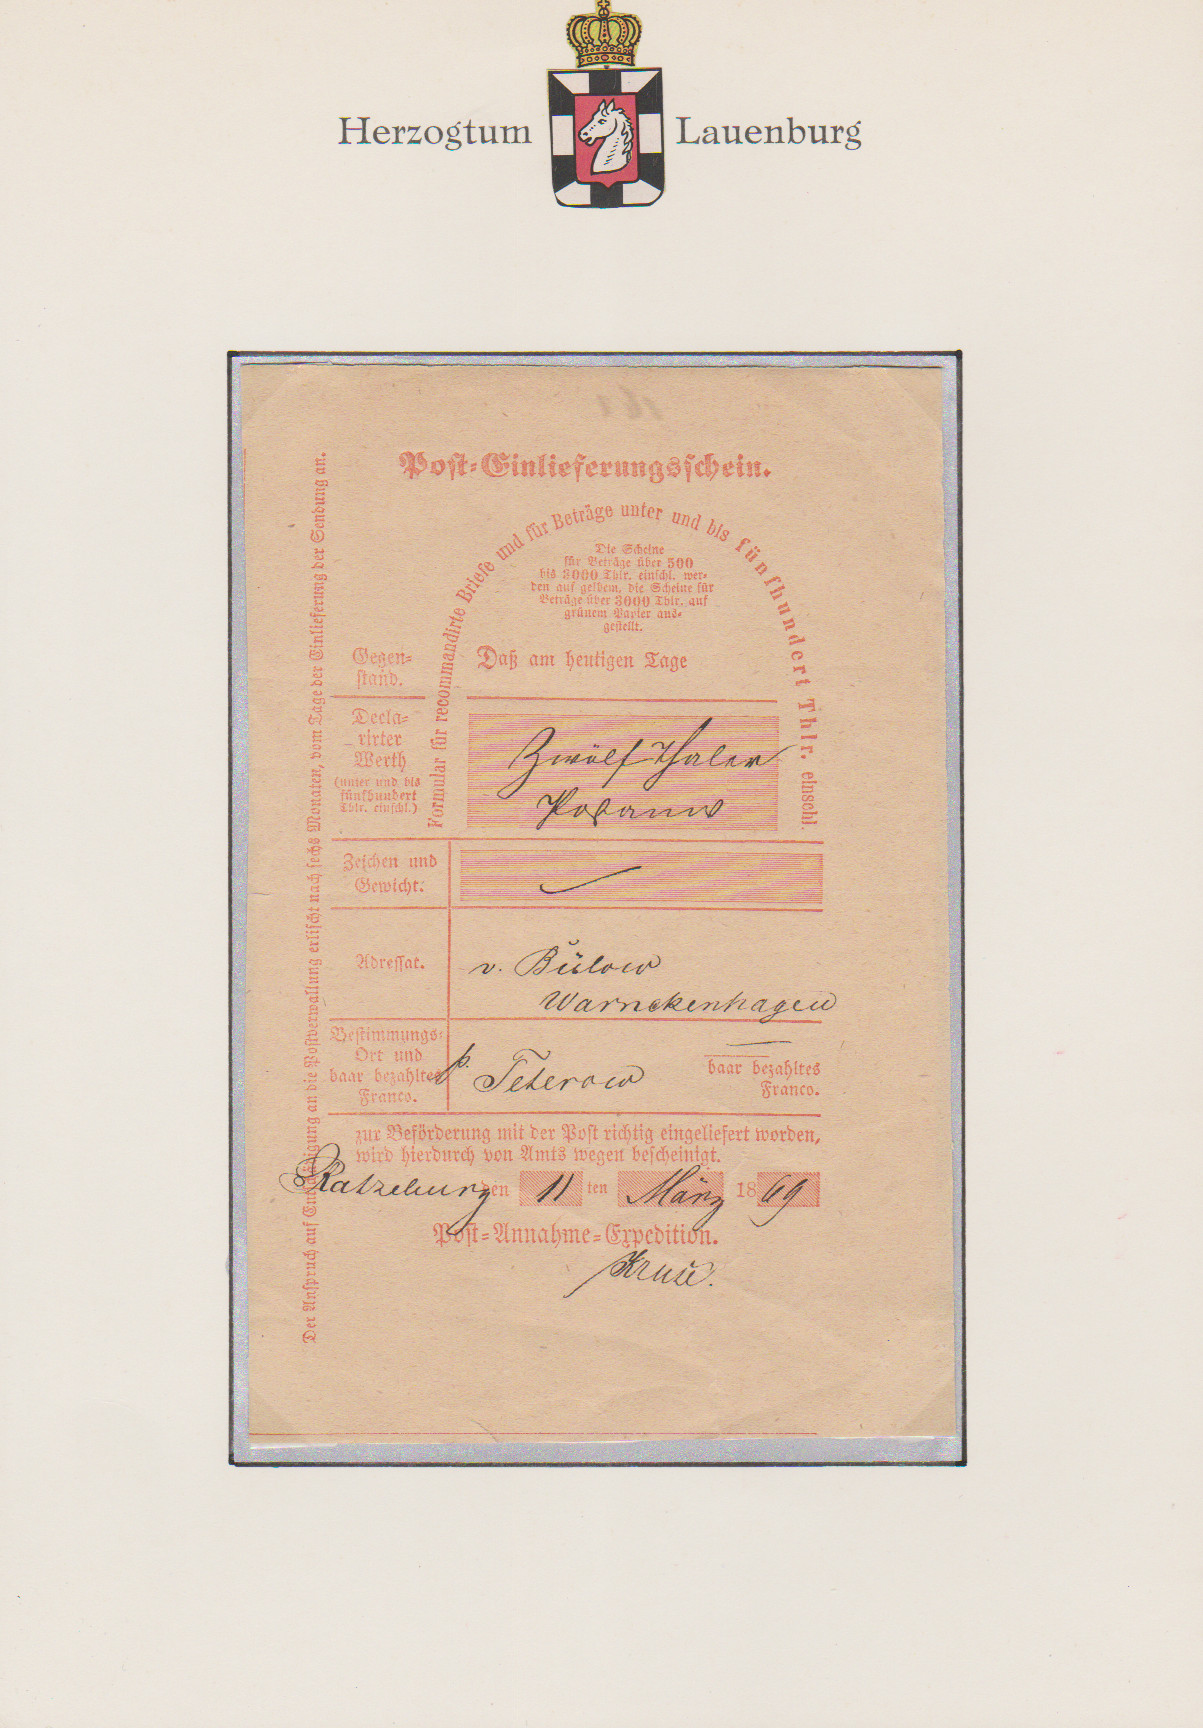 Herzogtum Lauenburg
Post-Einlieferungsschein.
Formular für recommandirte Briefe und für Beträge unter und bis fünfhundert Thlr. einschl.
Die Scheine
für Beträge über 500
bis 3000 Thlr. einschl. wer-
den auf gelbem, die Scheine für
Beträge über 3000 Thlr. auf
grünem Papier aus-
gestellt.
Gegen-
stand.
Daß am heutigen Tage
Decla-
rirter
Werth
(unter und bis
fünfhundert
Thlr. einschl.)
Zwölf Thaler
Zeichen und
Gewicht:
Adressat.
v. Bülow
Warnckenhagen
Bestimmungs-
Ort und
baar bezahltes
Franco.
p. Teterow
baar bezahltes
Franco.
zur Beförderung mit der Post richtig eingeliefert worden,
wird hierdurch von Amts wegen bescheinigt.
Ratzeburg den 11 ten März 1869
Post-Annahme-Expedition.
Kruse.
Der Anspruch auf Entschädigung an die Postverwaltung erlischt nach sechs Monaten, vom Tage der Einlieferung der Sendung an.